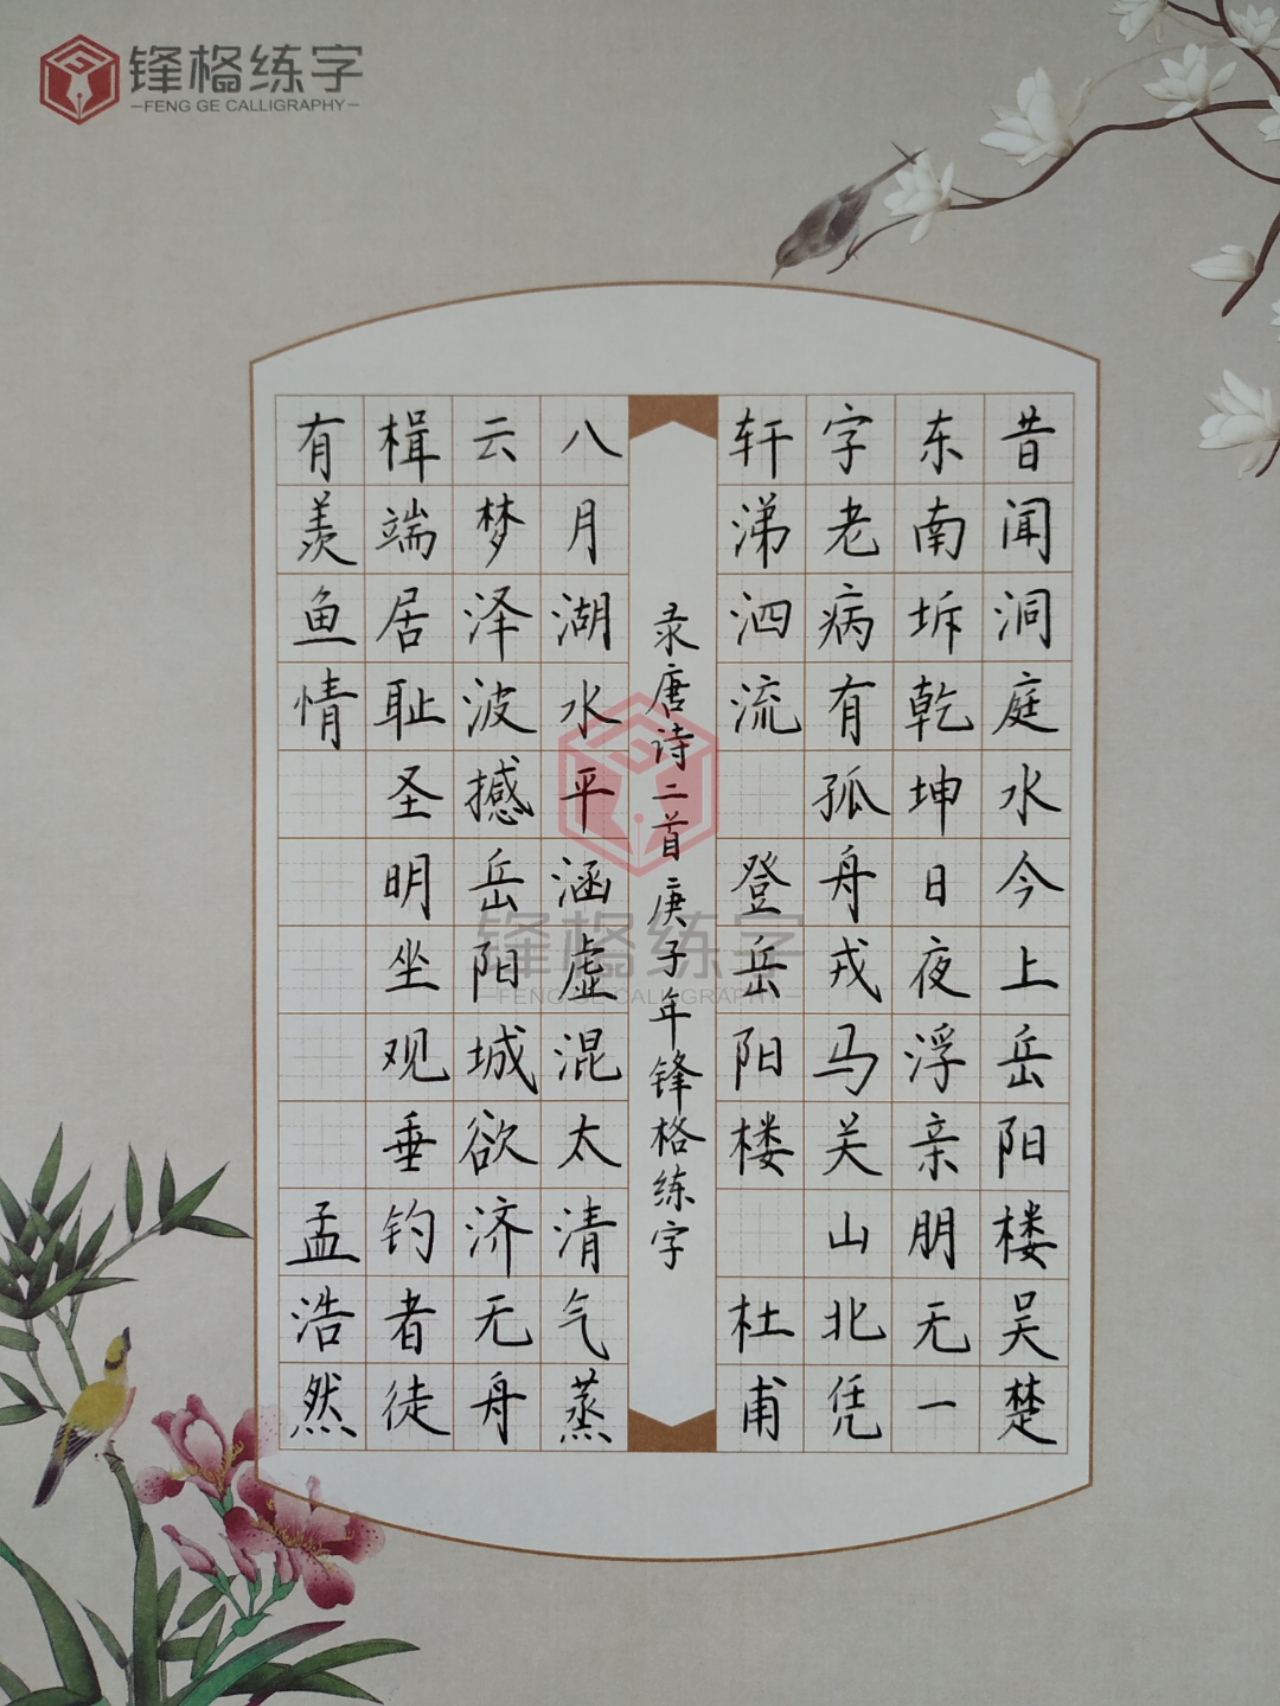 锋格练字
FENG GE CALLIGRAPHY
昔闻洞庭水今上岳阳楼吴楚
东南坼乾坤日夜浮亲朋无一
字老病有孤舟戎马关山北凭
轩涕泗流 登岳阳楼 杜甫
录唐诗二首庚子年锋格练字
八月湖水平涵虚混太清气蒸
云梦泽波撼岳阳城欲济无舟
楫端居耻圣明坐观垂钓者徒
有羡鱼情 孟浩然
锋格练字
FENG GE CALLIGRAPHY